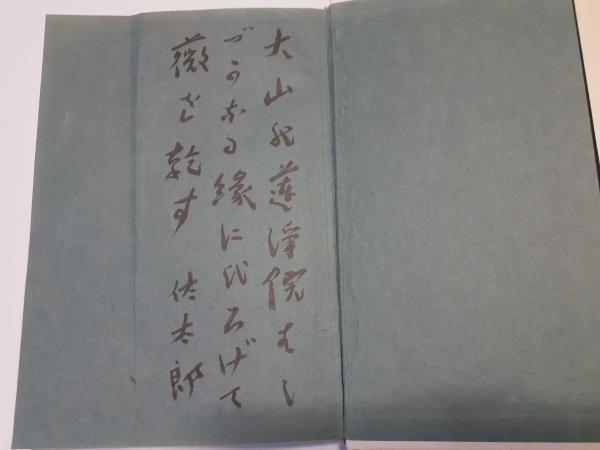 大山の蓮浄院はし
づかなる縁にひろげて
薇を乾す 佐太郎